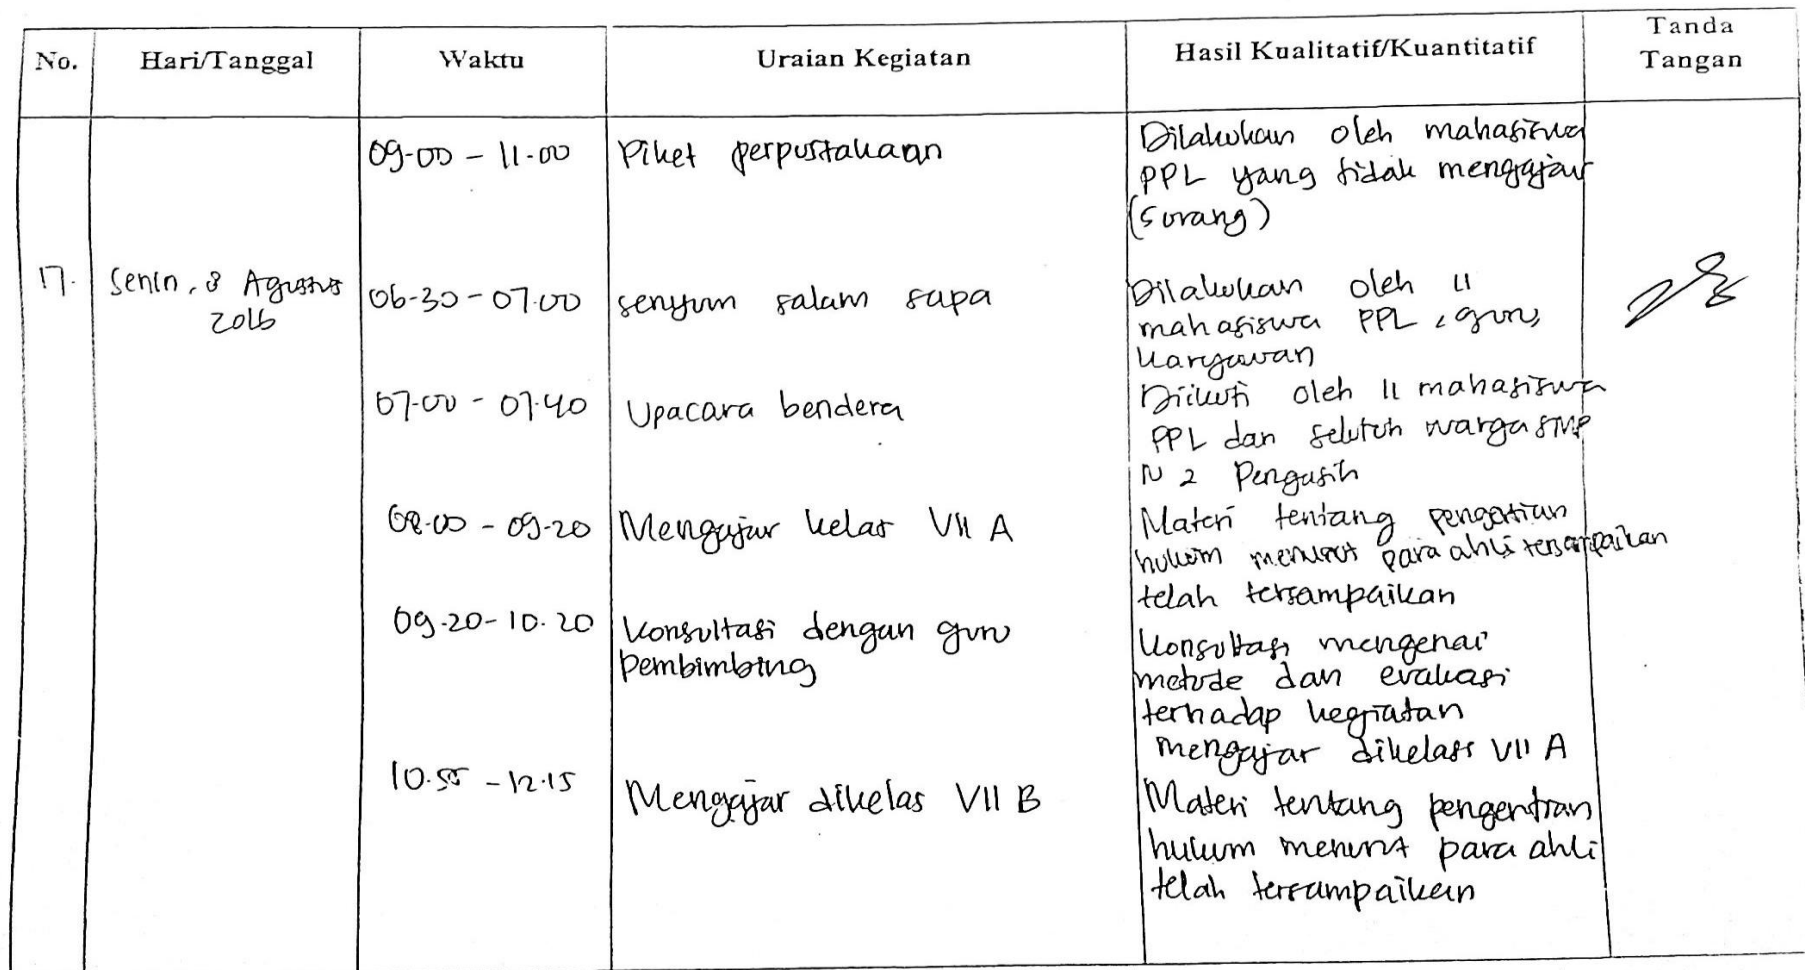 No. Hari/Tanggal Waktu Uraian Kegiatan Hasil Kualitatif/Kuantitatif Tanda Tangan
09-00 - 11-00 Piket perpustakaan Dilakukan oleh mahasiswa
PPL yang tidak mengajar
(5 orang)
17. Senin, 8 Agustus 2016 06-30 - 07.00 senyum salam sapa Dilakukan oleh 11
mahasiswa PPL, guru,
karyawan
07-00 - 07-40 Upacara bendera Diikuti oleh 11 mahasiswa
PPL dan seluruh warga SMP
N 2 Pengasih
08-00 - 09-20 Mengajar kelas VII A Materi tentang pengertian
hukum menurut para ahli tersampaikan
telah tersampaikan
09-20 - 10.20 Konsultasi dengan guru Konsultasi mengenai
pembimbing metode dan evaluasi
terhadap kegiatan
mengajar dikelas VII A
10.55 - 12.15 Mengajar dikelas VII B Materi tentang pengertian
hukum menurut para ahli
telah tersampaikan